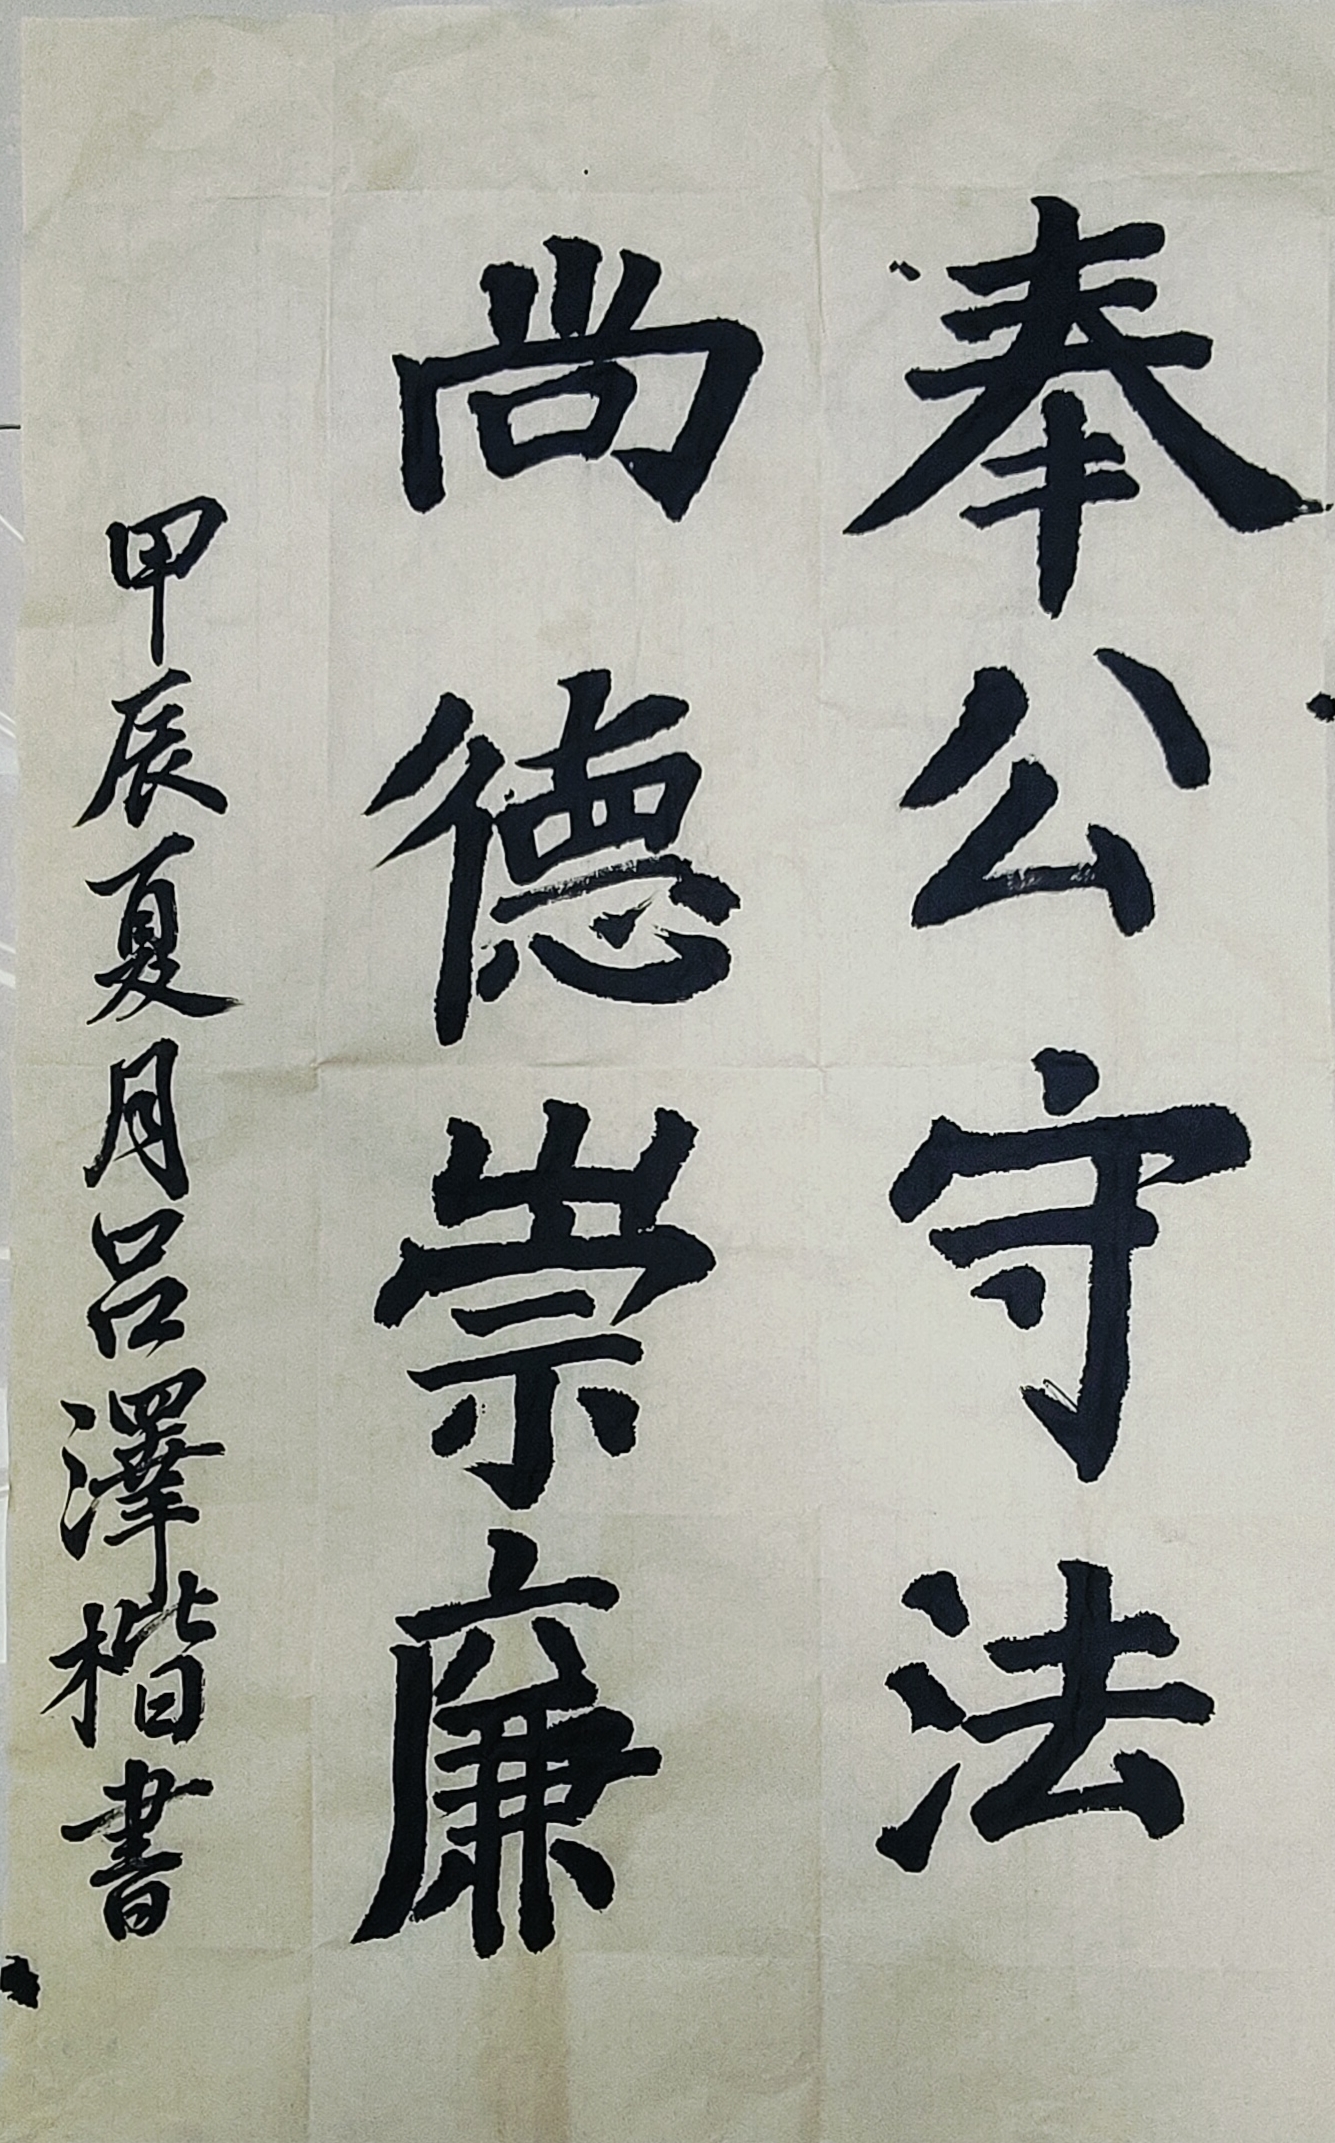 奉公守法
尚德崇廉
甲辰夏月吕澤楷書